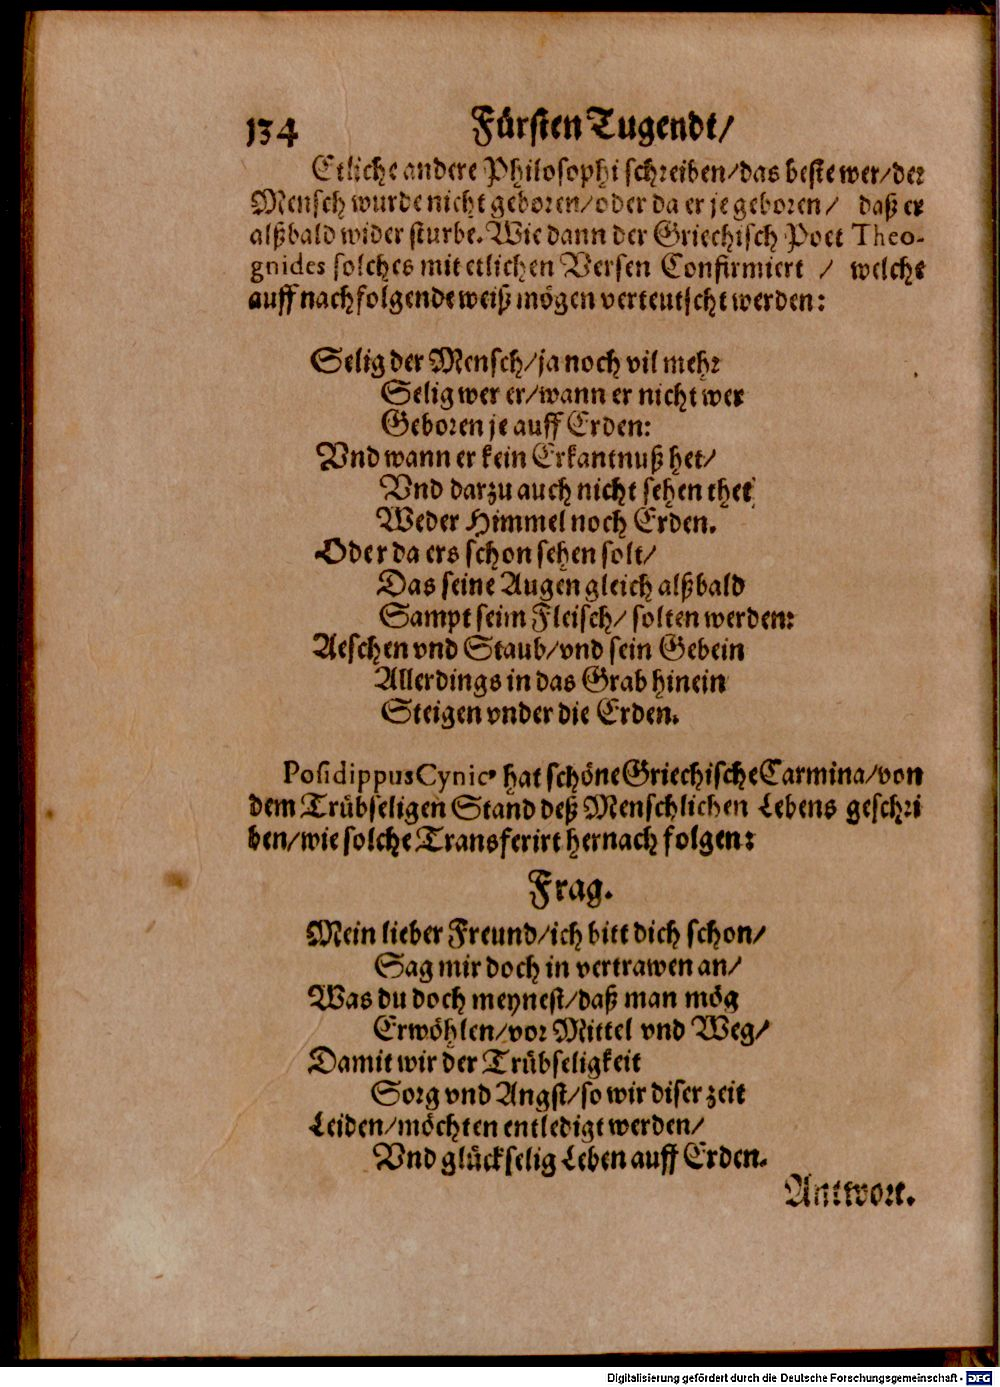 134 Fürsten Tugendt/
Etliche andere Philosophi schreiben/das beste wer/der
Mensch wurde nicht geboren/oder da er je geboren/ daß er
alßbald wider sturbe. Wie dann der Griechisch Poet Theo-
gnides solches mit etlichen Versen Confirmiert / welche
auff nachfolgende weiß mögen verteutscht werden:
Selig der Mensch/ja noch vil mehr
Selig wer er/wann er nicht wer
Geboren je auff Erden:
Vnd wann er kein Erkantnuß het/
Vnd darzu auch nicht sehen thet
Weder Himmel noch Erden.
Oder da ers schon sehen solt/
Das seine Augen gleich alßbald
Sampt seim Fleisch/ solten werden:
Aeschen vnd Staub/vnd sein Gebein
Allerdings in das Grab hinein
Steigen vnder die Erden.
Posidippus Cynicꝰ hat schöne Griechische Carmina/von
dem Trübseligen Stand deß Menschlichen Lebens geschri
ben/wie solche Transferirt hernach folgen:
Frag.
Mein lieber Freund/ich bitt dich schon/
Sag mir doch in vertrawen an/
Was du doch meynest/daß man mög
Erwöhlen/vor Mittel vnd Weg/
Damit wir der Trübseligkeit
Sorg vnd Angst/so wir diser zeit
Leiden/möchten entledigt werden/
Vnd glückselig Leben auff Erden.
Antwort.
Digitalisierung gefördert durch die Deutsche Forschungsgemeinschaft - DFG